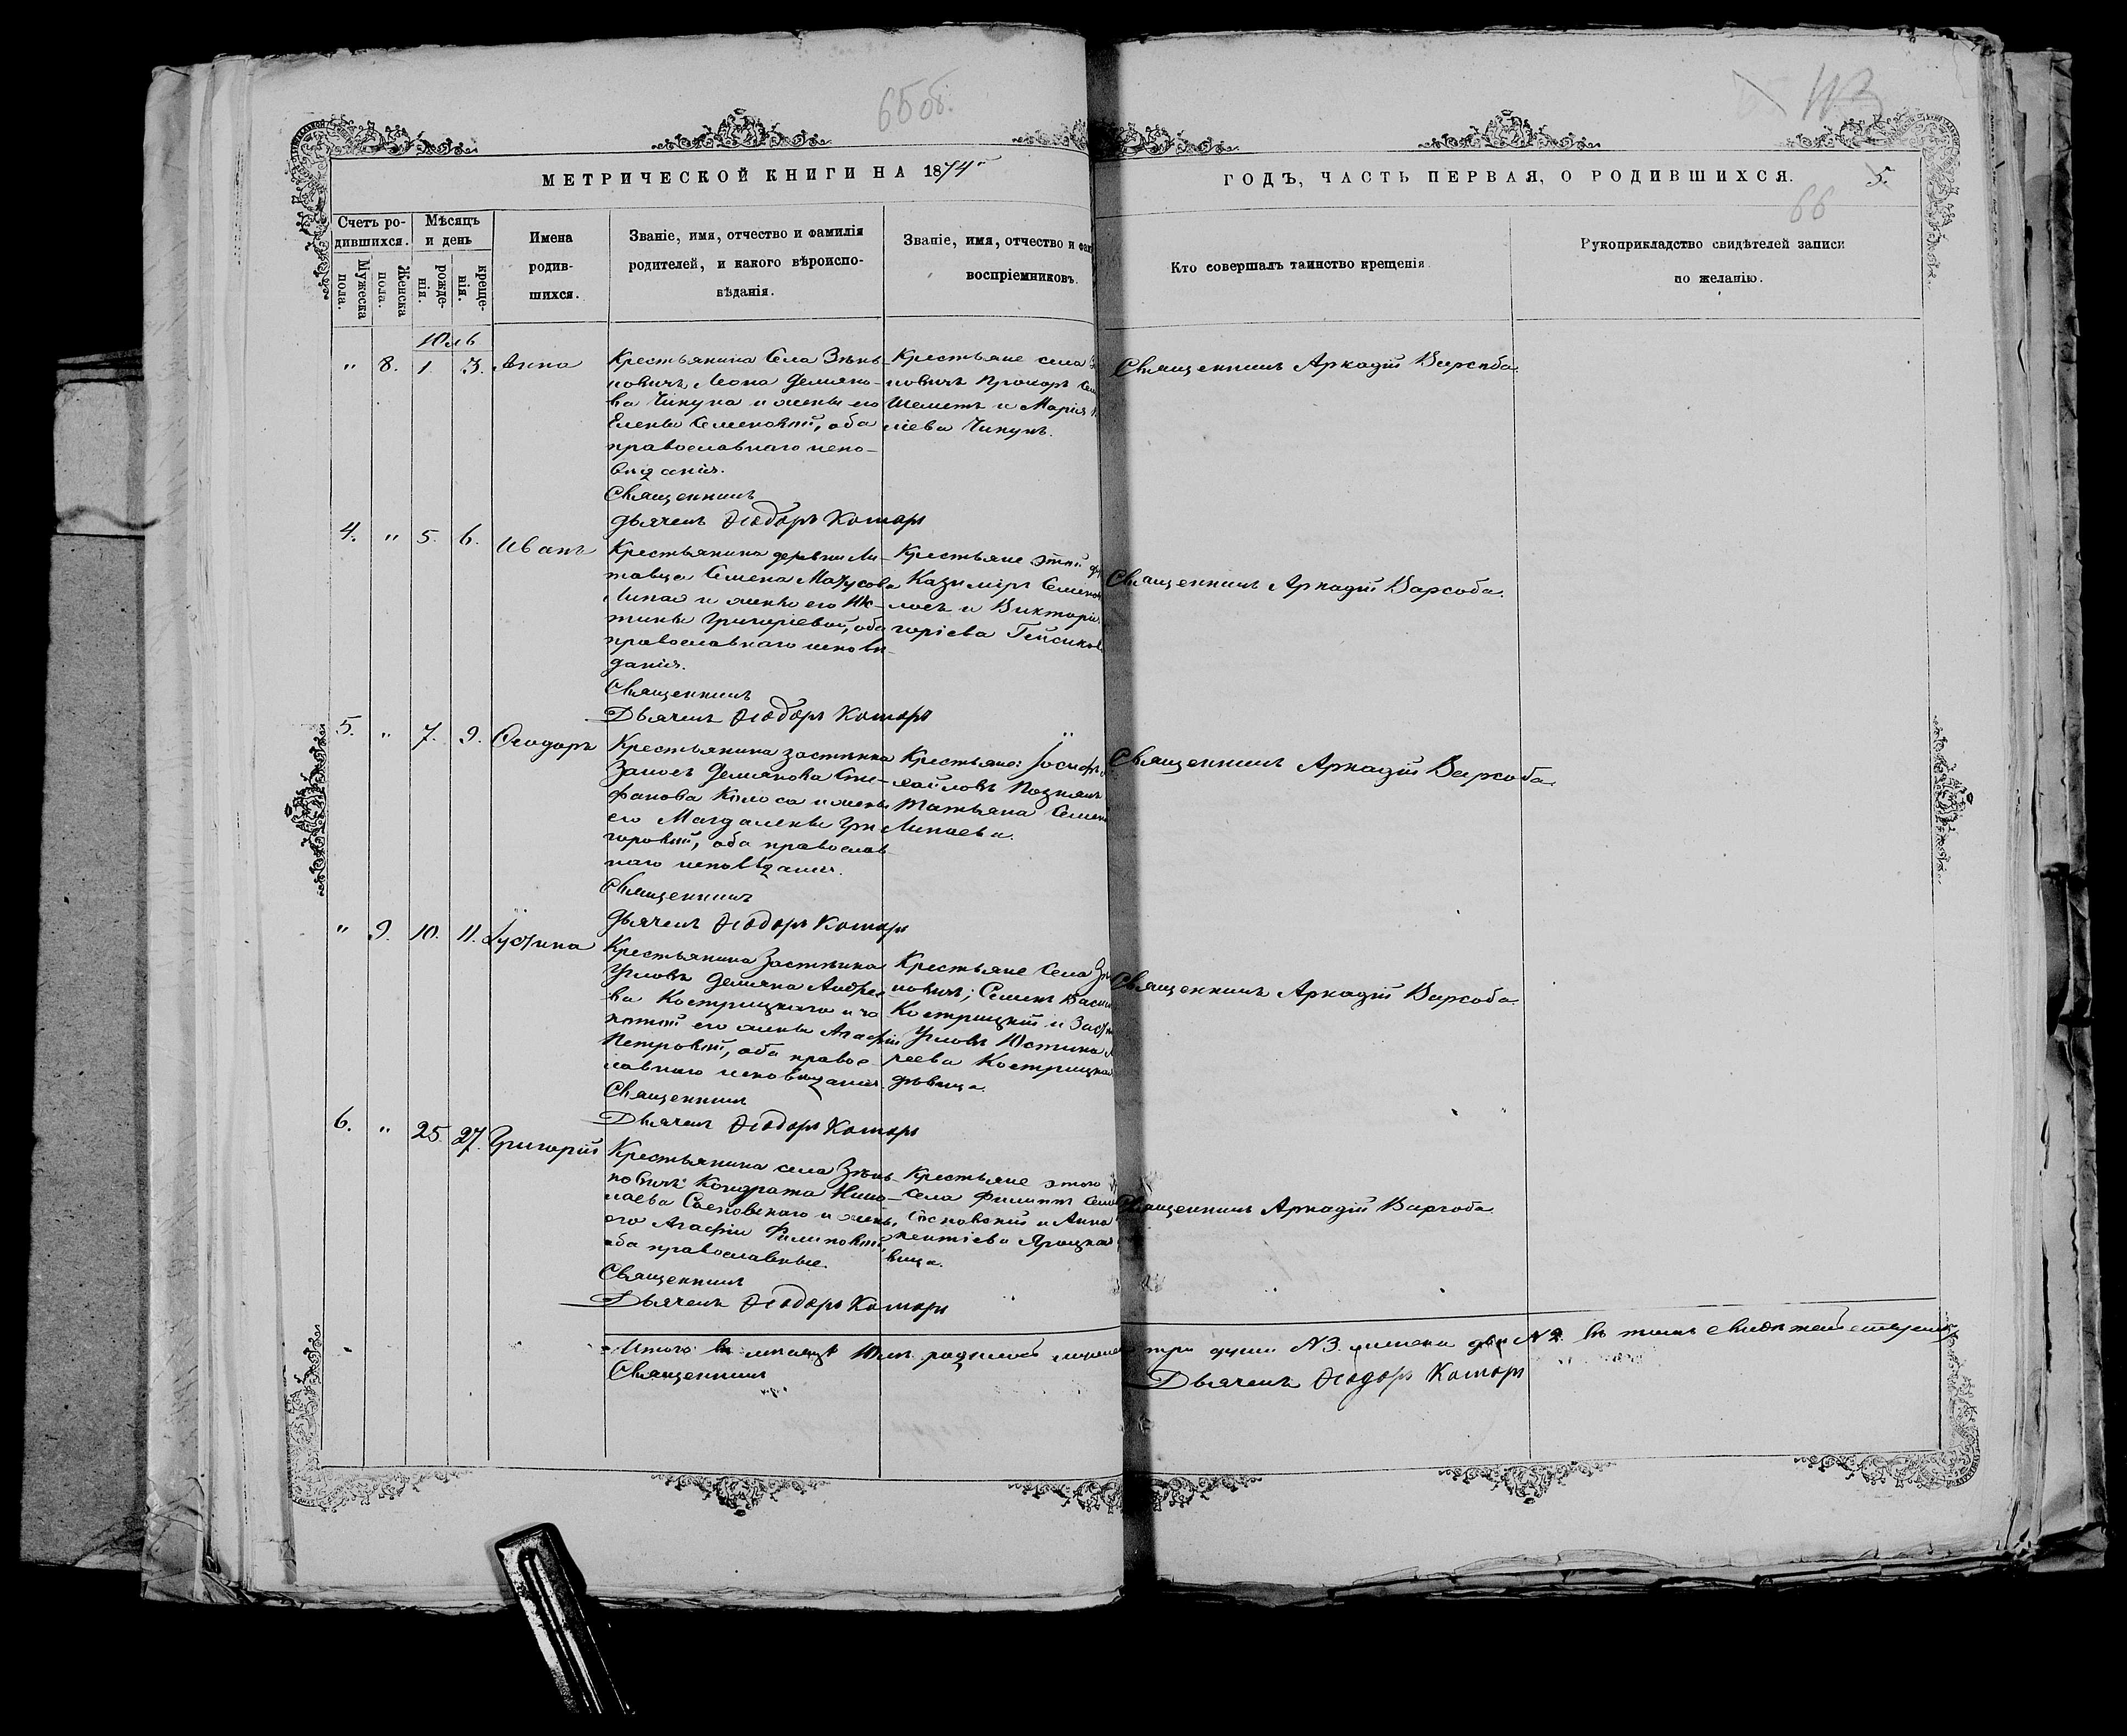 65об.
МЕТРИЧЕСКОЙ КНИГИ НА 1874
ГОДЪ, ЧАСТЬ ПЕРВАЯ, О РОДИВШИХСЯ.
5.
66
Счетъ ро-
дившихся.
Мужеска
пола.
Женска
пола.
Мѣсяцъ
и день
рожде-
нія.
креще-
нія.
Имена
родив-
шихся.
Званіе, имя, отчество и фамилія
родителей, и какого вѣроиспо-
вѣданія.
Званіе, имя, отчество и фам
воспріемниковъ.
Кто совершалъ таинство крещенія
Рукоприкладство свидѣтелей записи
по желанію.
Юль
" 8. 1. 3. Анна
Крестьянина Села Зѣнь-
ковичъ Леона Демяно-
ва Чикуна и жены его
Елены Семеновой, оба
православнаго испо-
вѣданія.
Священникъ
дьячекъ Ѳеодоръ Комаръ
Крестьяне села
новичъ Прохоръ
Шеметъ и Марія
сіева Чикунъ.
Священникъ Аркадій Варсоба.
4. " 5. 6. Иванъ
Крестьянина деревни Ли-
тавца Семена Матусова
Липая и жены его Ю-
тины Григоріевой, оба
православнаго исповѣ-
данія.
Священникъ
Дьячекъ Ѳеодоръ Комаръ
Крестьяне этой
Казиміръ Семенов
и Викторія
горіева
Священникъ Аркадій Варсоба.
5. " 7. 9. Ѳеодоръ
Крестьянина застѣнка
Демянова Сте-
фанова Колоса и жены
его Магдалены Гри-
горовой, оба православ-
наго исповѣданія.
Священникъ
дьячекъ Ѳеодоръ Комаръ
Крестьяне: Іосифъ
хайловъ Познякъ
Татьяна Семен
Липаева.
Священникъ Аркадій Варсоба.
" 9. 10. 11. Іустина
Крестьянина Застѣнка
Угловъ Демяна Андрее-
ва Кострицкаго и за-
конной его жены Агафіи
Петровой, оба правос-
лавнаго исповѣданія.
Священникъ
Дьячекъ Ѳеодоръ Комаръ
Крестьяне Села
новичъ; Семенъ Васил
Кострицкій и Заст
Угловъ Юстина
реева Кострицкая
дѣвица.
Священникъ Аркадій Варсоба.
6. " 25. 27. Григорій
Крестьянина села Зѣнь-
ковичъ Кондрата Нико-
лаева Сосновскаго и жены
его Агафіи Филиповой
оба православные.
Священникъ
Дьячекъ Ѳеодоръ Комаръ
Крестьяне этого
села Филиппъ Семе
Сосновскій и Анна
кентіева Яроцкая
вица.
Священникъ Аркадій Варсоба.
Итого въ мѣсяцѣ Юлѣ родилось три души №3. женска двѣ №2. въ томъ свидѣтельствуемъ
Священникъ
Дьячекъ Ѳеодоръ Комаръ